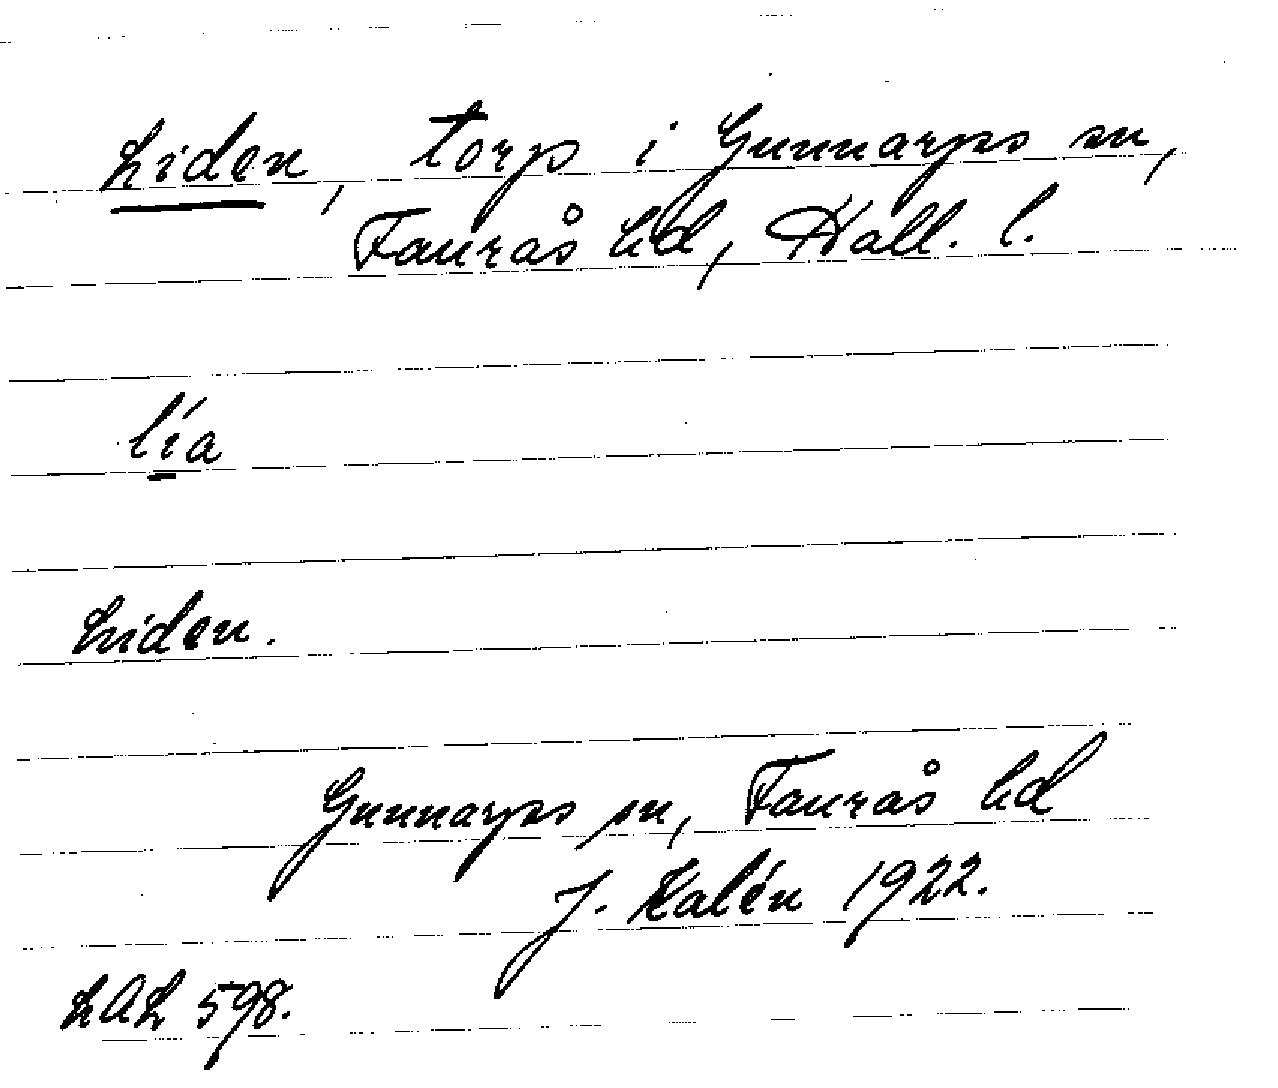 Liden, torp i Gunnarps sn,
Faurås hd, Hall. l.
lía
Liden.
Gunnarps sn, Faurås hd
J. Kalén 1922.
LAL 598.